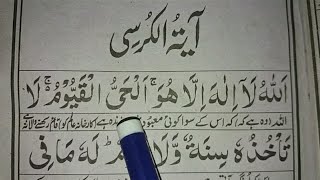 آيَةُ الْكُرْسِي
اَللّٰهُ لَآ اِلٰهَ اِلَّا هُوَ ۚ اَلْحَيُّ الْقَيُّوْمُ ۚ لَا
اللہ وہ ہے کہ اس کے سوا کوئی معبود
تَاْخُذُهٗ سِنَةٌ وَّلَا لَهٗ مَا فِي